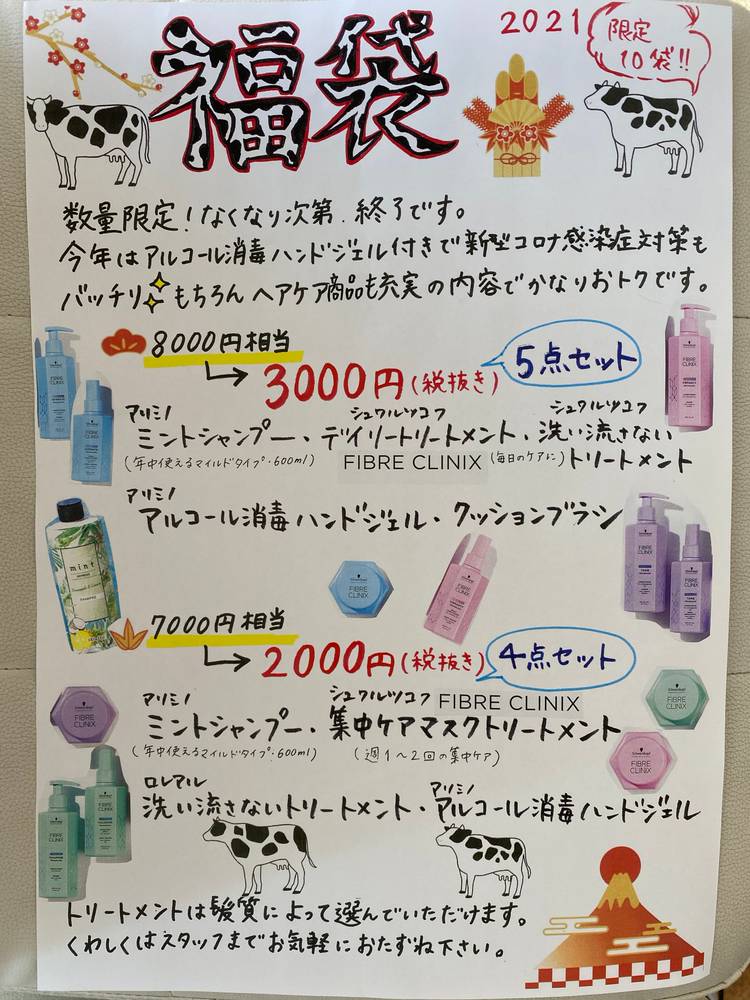 福袋
2021
限定
10袋!!
数量限定!なくなり次第、終了です。
今年はアルコール消毒ハンドジェル付きで新型コロナ感染症対策も
バッチリ✨もちろんヘアケア商品も充実の内容でかなりおトクです。
8000円相当
→3000円(税抜き)
5点セット
アリミノ シュワルツコフ シュワルツコフ
ミントシャンプー・デイリートリートメント・洗い流さない
(年中使えるマイルドタイプ・600ml) FIBRE CLINIX (毎日のケアに) トリートメント
アリミノ
アルコール消毒ハンドジェル・クッションブラシ
mint
FIBRE
CLINIX
7000円相当
→2000円(税抜き)
4点セット
アリミノ シュワルツコフ FIBRE CLINIX
ミントシャンプー・集中ケアマスクトリートメント
(年中使えるマイルドタイプ・600ml) (週1〜2回の集中ケア)
FIBRE
CLINIX
FIBRE
CLINIX
FIBRE
CLINIX
ロレアル アリミノ
洗い流さないトリートメント・アルコール消毒ハンドジェル
トリートメントは髪質によって選んでいただけます。
くわしくはスタッフまでお気軽におたずね下さい。